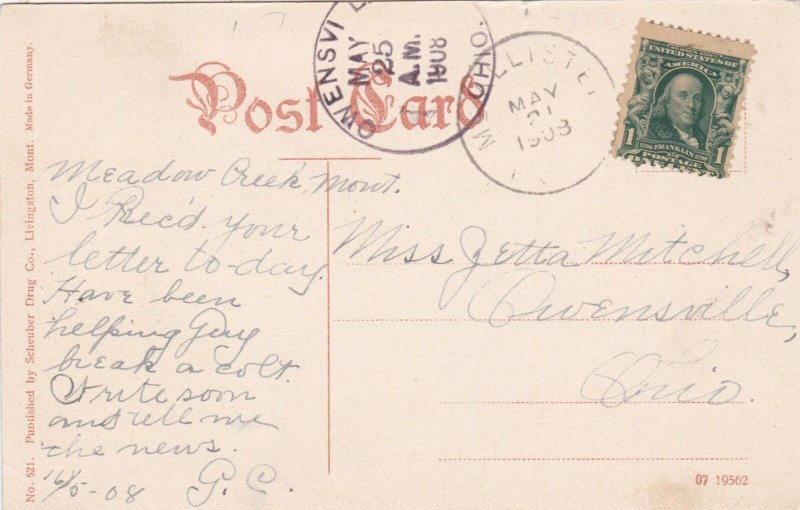 Post Card
OWENSVI
OHIO.
MAY
25
A.M.
1908
M LLISTE
MAY
21
1908
UNITED STATES OF
AMERICA
1
1
1706 FRANKLIN 1790
POSTAGE
Meadow Creek Mont.
I Rec'd. your
letter to-day.
Have been
helping Guy
break a colt.
Write soon
and tell me
the news.
G. C.
5-08
Miss Zetta Mitchell,
Owensville,
Ohio.
No. 521. Published by Scheuber Drug Co., Livingston, Mont. Made in Germany.
07 19562